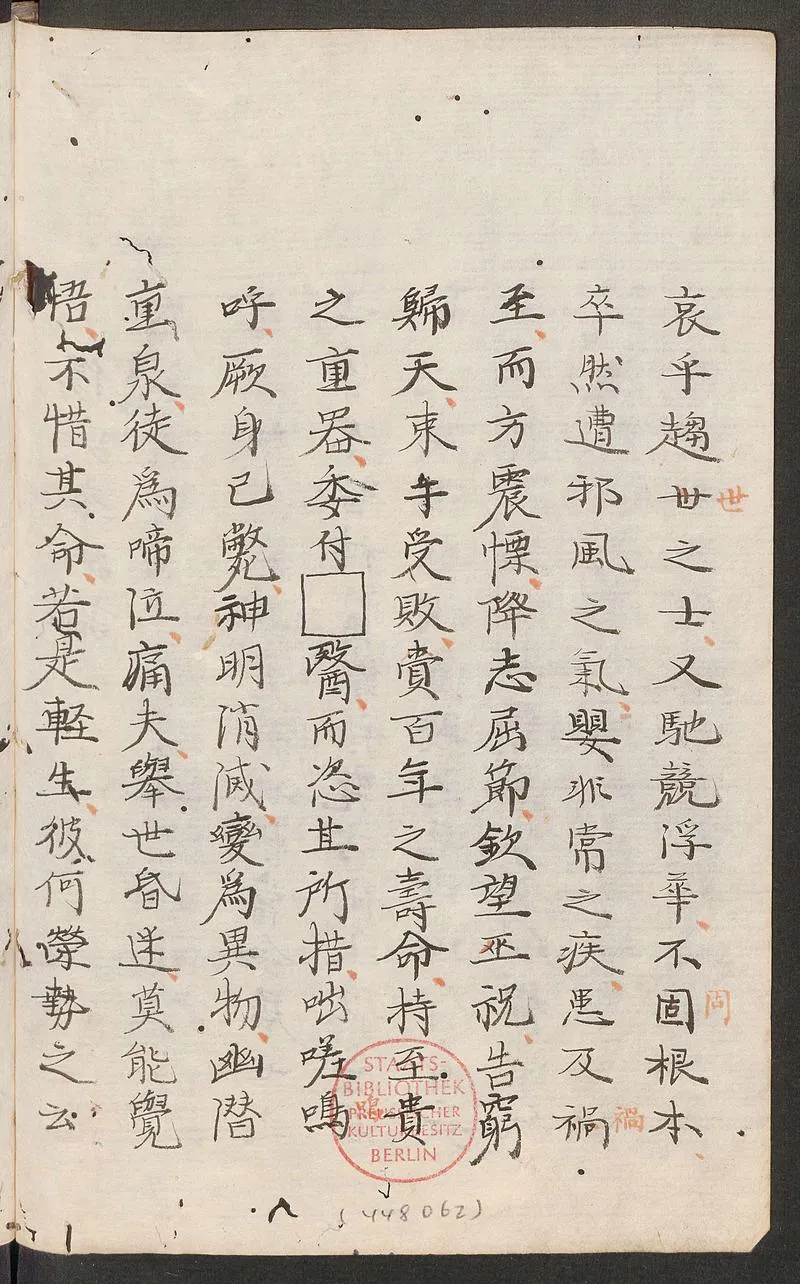 哀乎趨世之士又馳競浮華不固根本
世
固
卒然遭邪風之氣嬰非常之疾患及禍
禍
至而方震慄降志屈節欽望巫祝告窮
歸天束手受敗賫百年之壽命持至貴
之重器委付□醫而恣其所措咄嗟鳴
呼厥身已斃神明消滅變爲異物幽潛
重泉徒爲啼泣痛夫舉世昏迷莫能覺
悟不惜其命若是軽生彼何榮勢之云
STAATS-
BIBLIOTHEK
PREUSSISCHER
KULTURBESITZ
BERLIN
(448062)